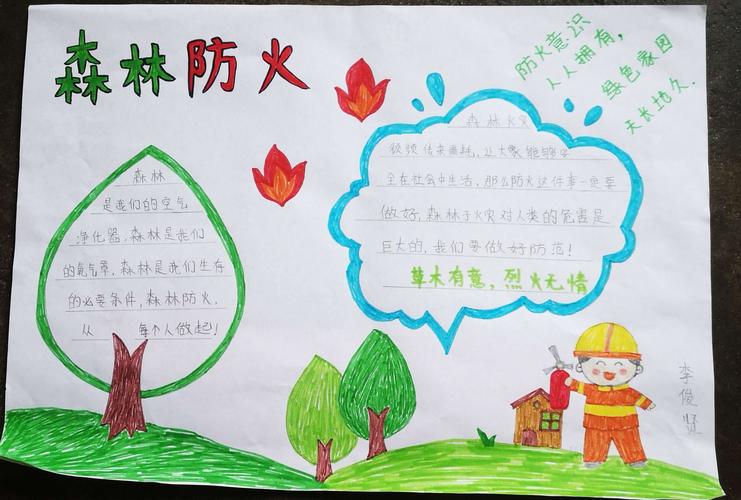 森林防火
防火意识
人人拥有，
绿色家园
天长地久.
森林
是我们的空气
净化器，森林是我们
的氧气罩，森林是我们生存
的必要条件，森林防火，
从 每个人做起！
森林火灾
频频传来噩耗，让大家能够安
全在社会中生活，那么防火这件事一定要
做好，森林火灾对人类的危害是
巨大的，我们要做好防范！
草木有意，烈火无情
李俊贤